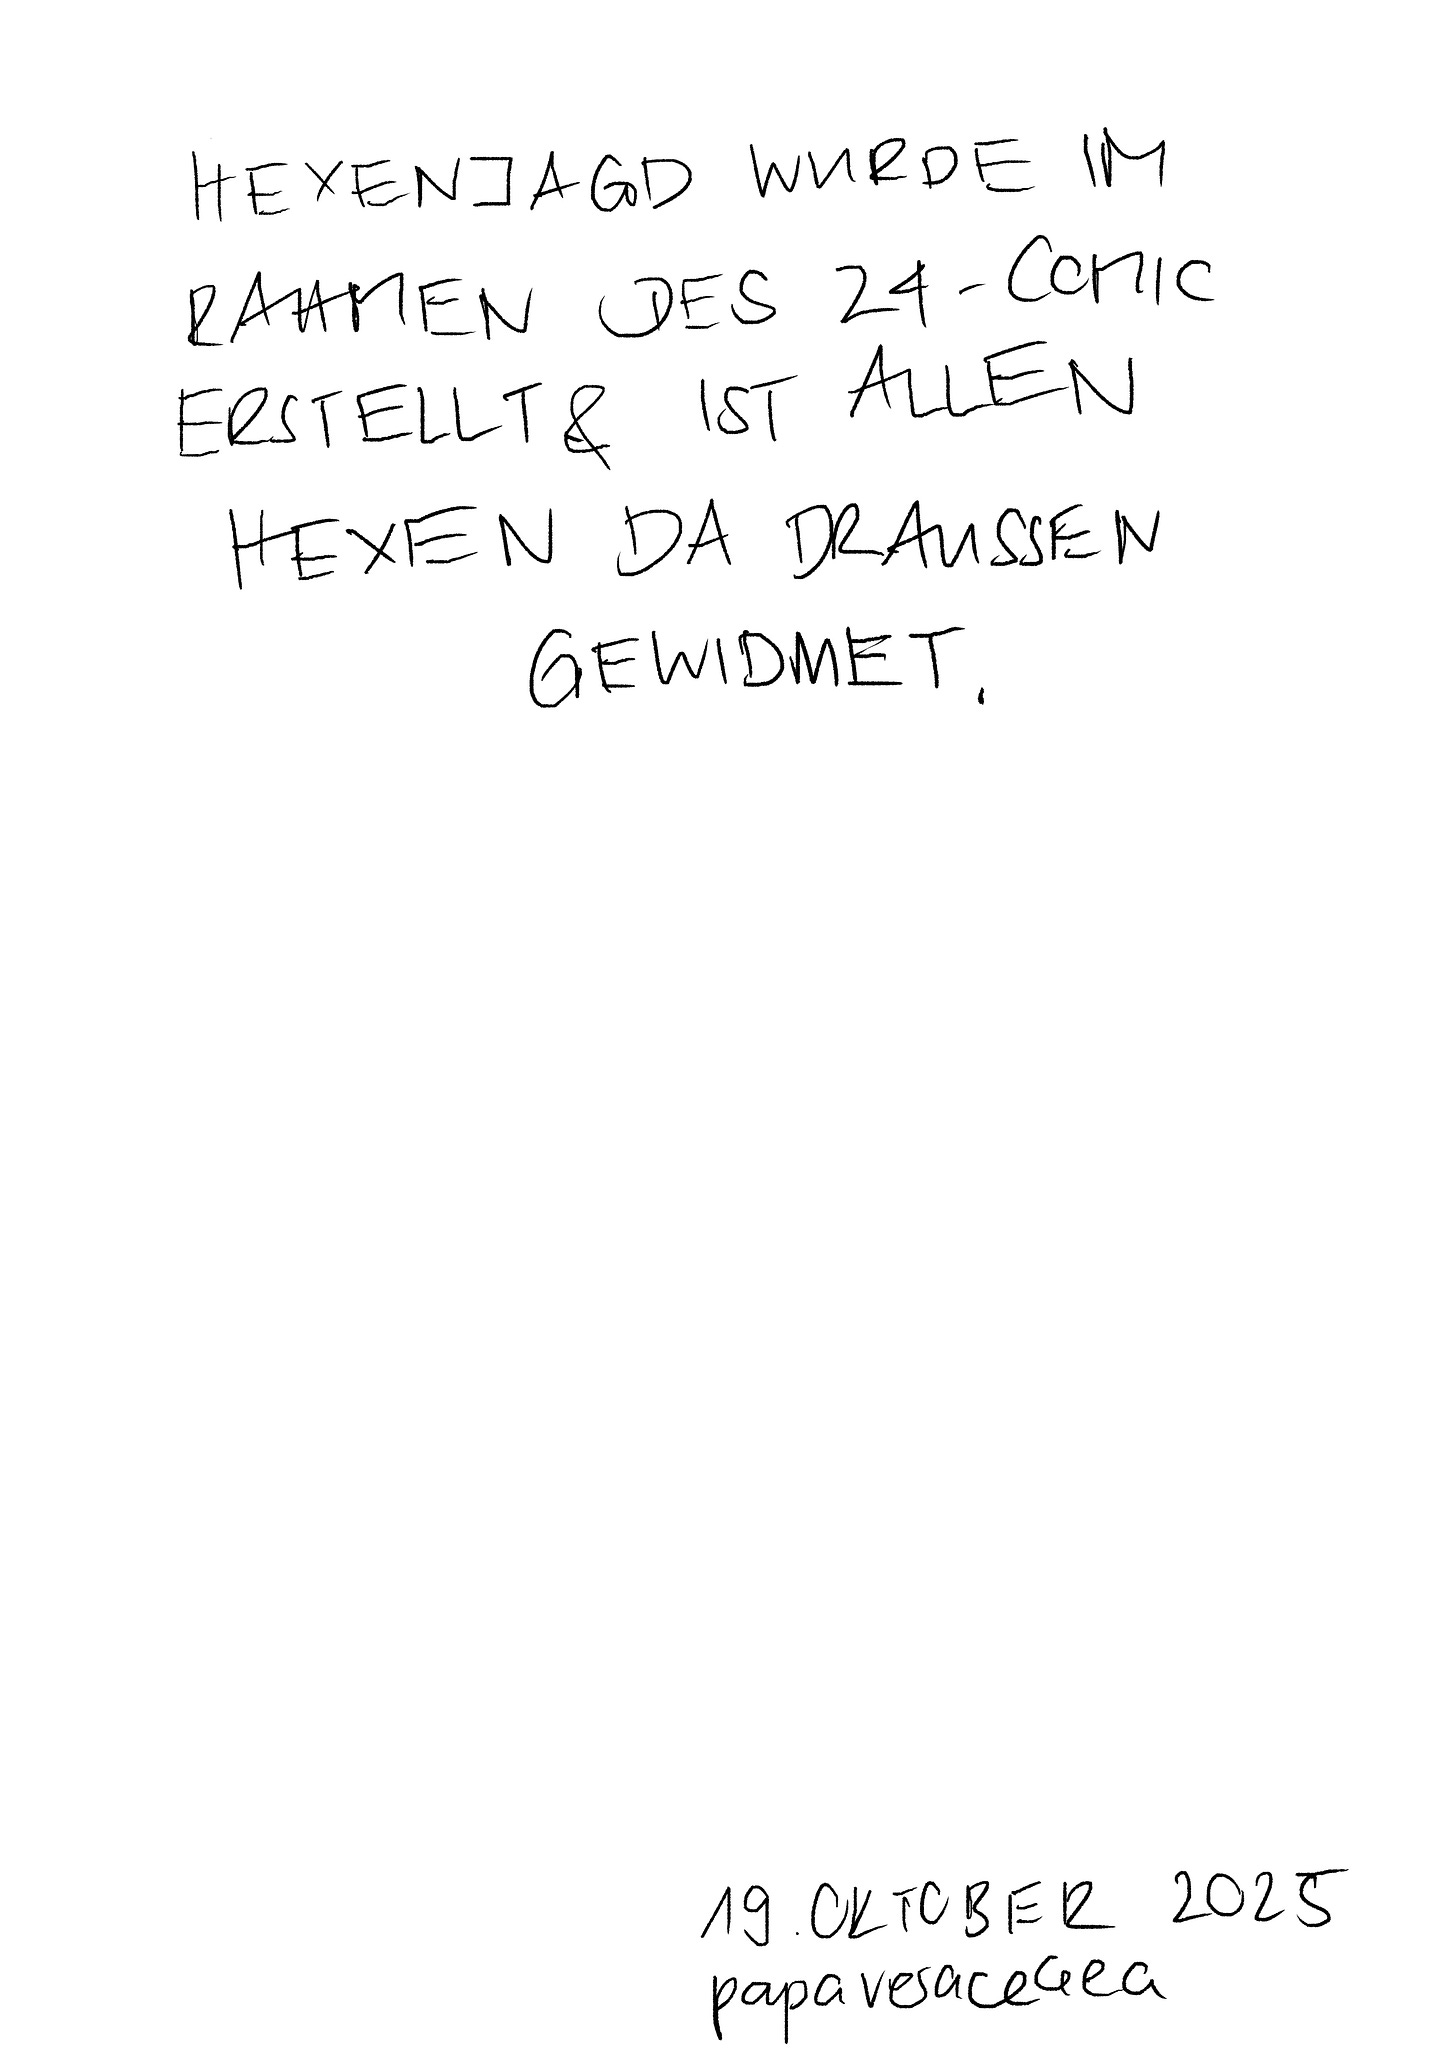 HEXENJAGD WURDE IM
RAHMEN DES 24-COMIC
ERSTELLT & IST ALLEN
HEXEN DA DRAUSSEN
GEWIDMET.
19. OKTOBER 2025